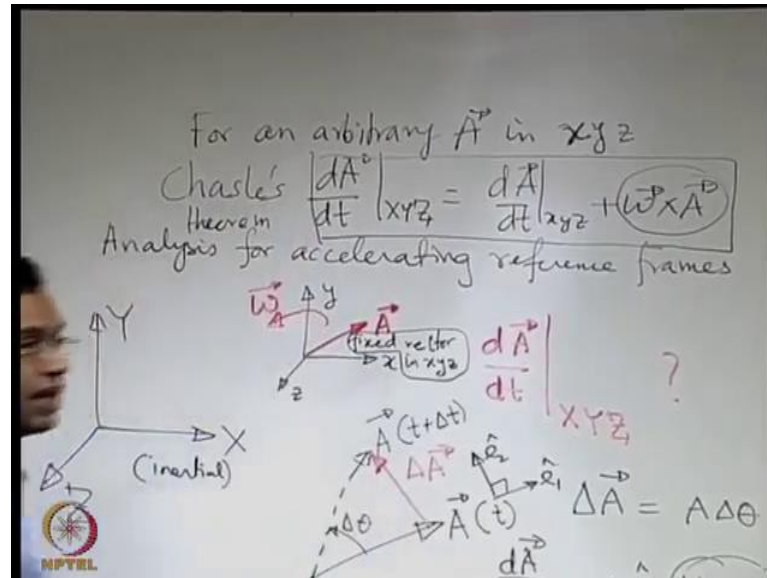 For an arbitrary A in xyz
Chasle's theorem dA/dt|XYZ = dA/dt|xyz + ω×A
Analysis for accelerating reference frames
Y
X
Z
(inertial)
ω
y
A
fixed vector in xyz
x
z
dA/dt|XYZ ?
A(t+Δt)
ΔA
Δθ
A(t)
ê2
ê1
ΔA = AΔθ
dA
NPTEL